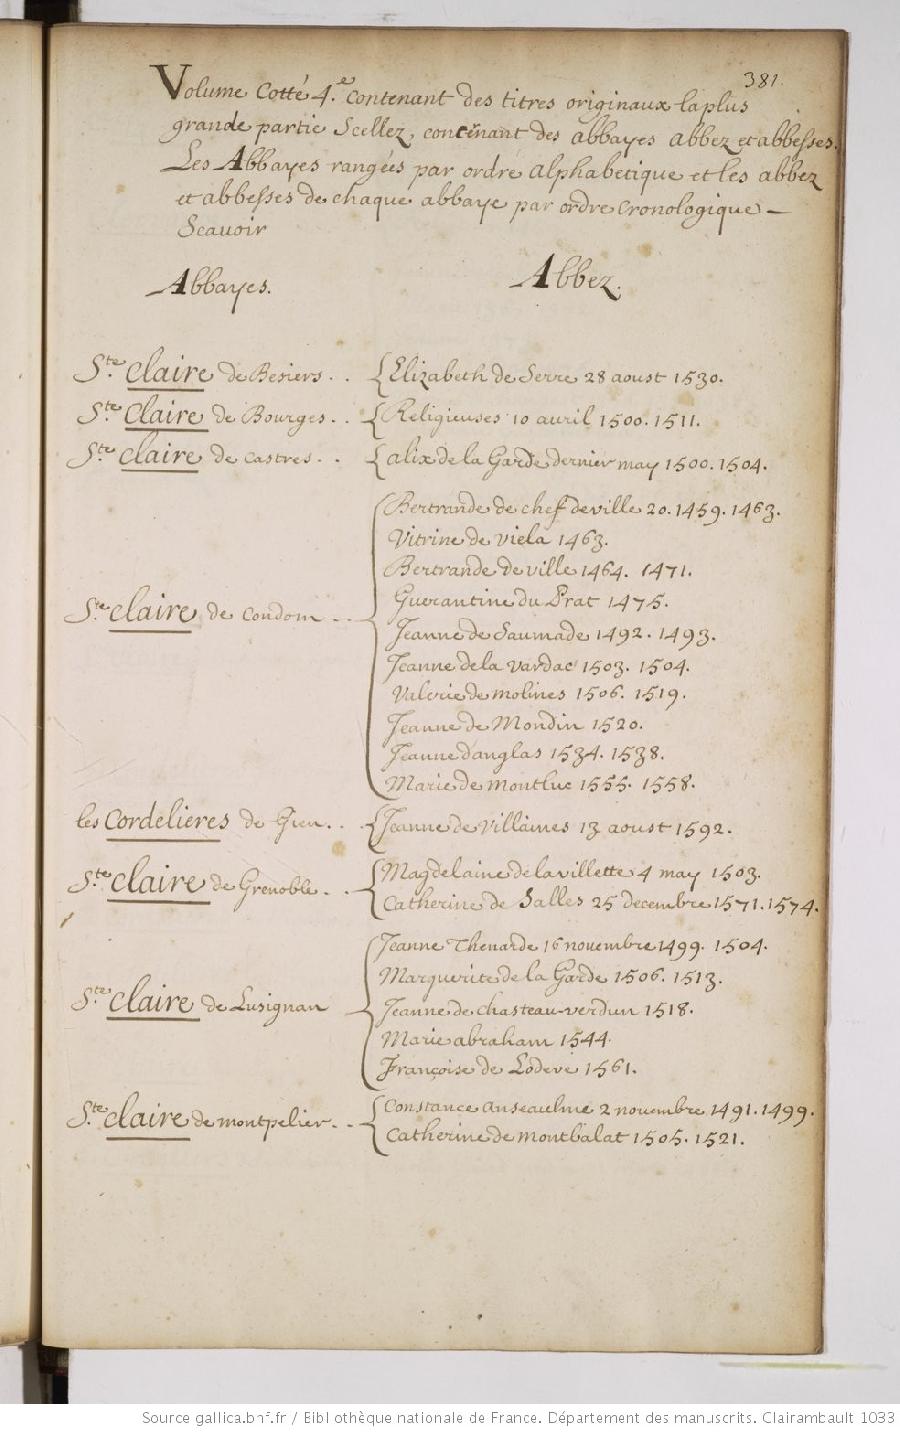 381.
Volume Cotté 4.e contenant des titres originaux la plus
grande partie Scellez, concernant des abbayes abbez et abbesses.
Les Abbayes rangées par ordre alphabetique et les abbez
et abbesses de chaque abbaye par ordre cronologique _
Scavoir
Abbayes. Abbez.
Ste. Claire de Besiers . . { Elizabeth de Serre 28 aoust 1530.
Ste. Claire de Bourges . . { Religieuses 10 avril 1500. 1511.
Ste. Claire de Castres . . { alix de la Garde dernier may 1500. 1504.
Bertrande de chef deville 20. 1459. 1463.
Vitrine de viela 1463.
Bertrande de ville 1464. 1471.
Guerantine du Prat 1475.
Ste. Claire de Condom . . {
Jeanne de Saumade 1492. 1493.
Jeanne de la vardac 1503. 1504.
Valerie de molines 1506. 1519.
Jeanne de Mondin 1520.
Jeanne d'anglas 1534. 1538.
Marie de montluc 1555. 1558.
les Cordelieres de Gien . . { Jeanne de Villaines 13 aoust 1592.
Ste. Claire de Grenoble . . { Magdelaine de la villette 4 may 1503.
Catherine de Salles 25 decembre 1571. 1574.
Jeanne Thenarde 16 novembre 1499. 1504.
Marguerite de la Garde 1506. 1513.
Ste. Claire de Lusignan { Jeanne de chasteau-verdun 1518.
Marie abraham 1544.
Françoise de Lodeve 1561.
Ste. Claire de montpelier . . { Constance anseaulme 2 novembre 1491. 1499.
Catherine de montbalat 1505. 1521.
Source gallica.bnf.fr / Bibliothèque nationale de France. Département des manuscrits. Clairambault 1033